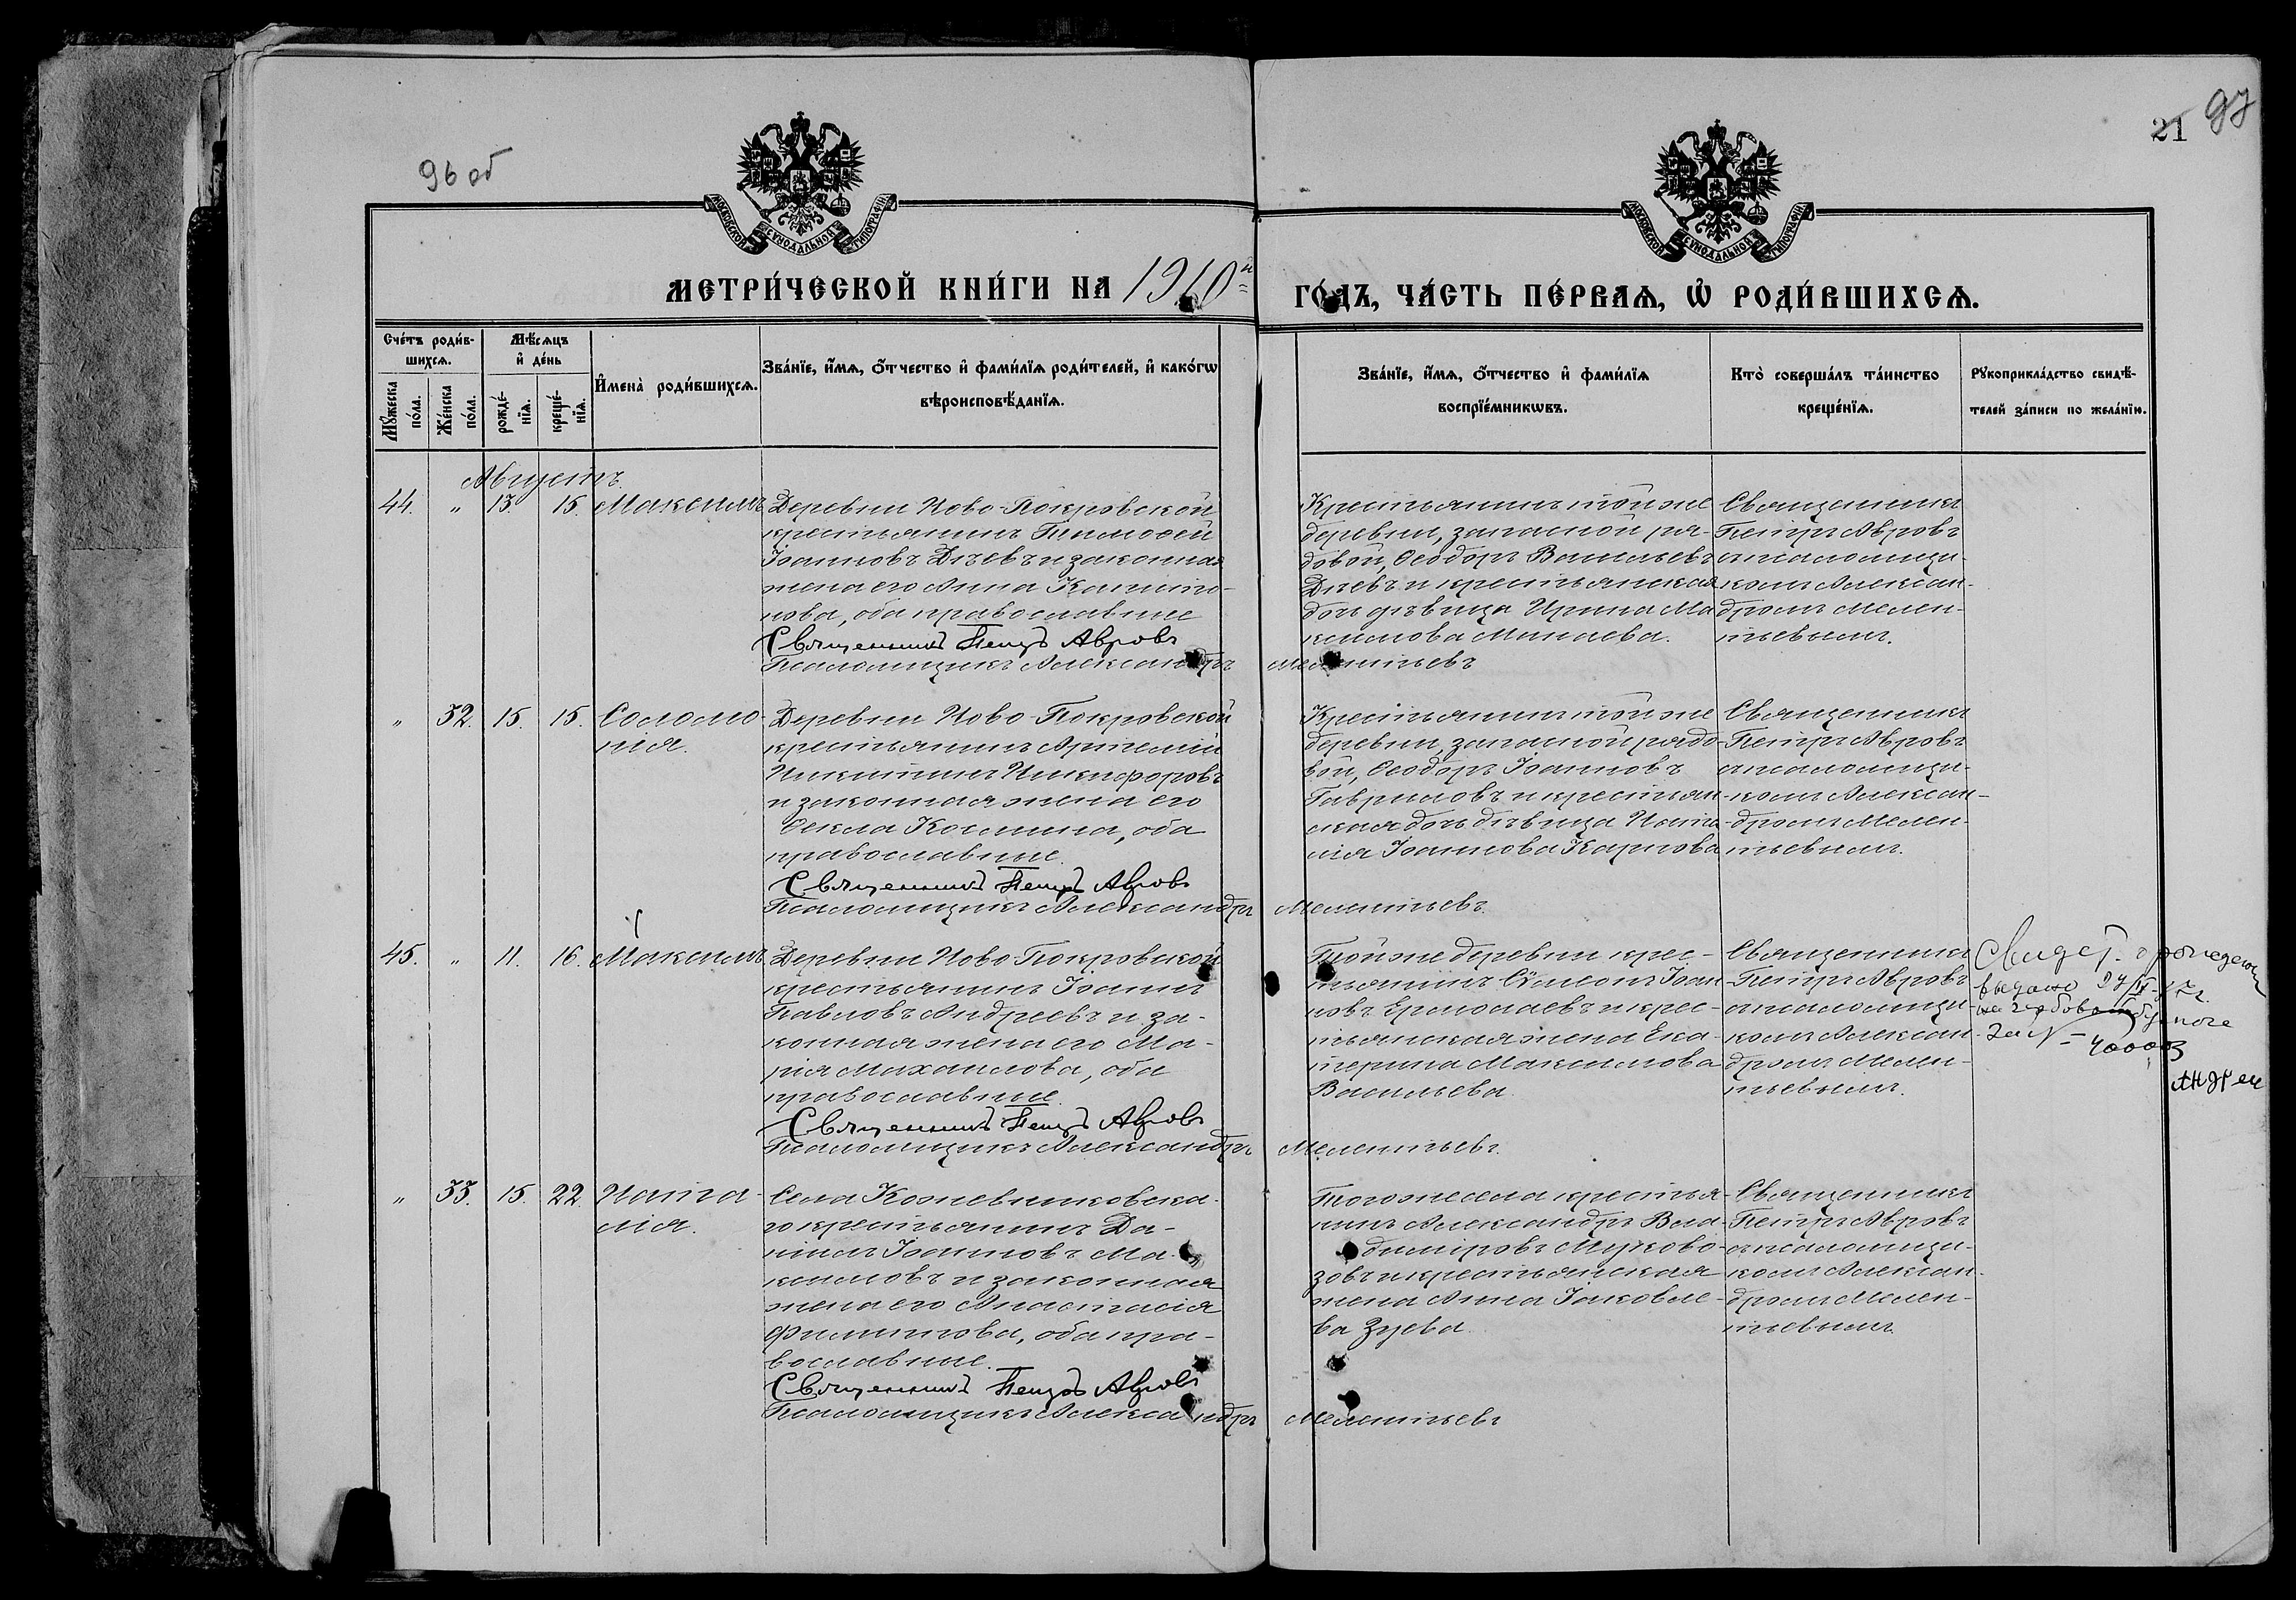 96 об
21 97
МОСКОВСКОЙ СѴНОДАЛЬНОЙ ТИПОГРАФІИ
МОСКОВСКОЙ СѴНОДАЛЬНОЙ ТИПОГРАФІИ
МЕТРИ́ЧЕСКОЙ КНИ́ГИ НА 1910й
ГО́ДЪ, ЧА́СТЬ ПЕ́РВАѦ, Ѡ҆ РОДИ́ВШИХСѦ.
Сче́тъ роди́в-
шихсѧ.
Мꙋ́жеска по́ла.
Же́нска по́ла.
Мѣ́сѧцъ
и҆ де́нь
рожде́-нїѧ.
креще́-нїѧ.
И҆мена̀ роди́вшихсѧ.
Зва́нїе, и҆́мѧ, ѻ҆́тчество и҆ фами́лїѧ роди́телей, и҆ како́гѡ
вѣроисповѣ́данїѧ.
Зва́нїе, и҆́мѧ, ѻ҆́тчество и҆ фами́лїѧ
воспрїе́мникѡвъ.
Кто̀ соверша́лъ та́инство
креще́нїѧ.
Рꙋкоприкла́дство свидѣ́-
телей за́писи по жела́нїю.
Августъ.
44. " 13. 15. Максимъ
Деревни Ново-Покровской
крестьянинъ Тимоѳей
Іоанновъ Дѣевъ и законная
жена его Анна Капито-
нова, оба православные
Священникъ Петръ Авровъ
Псаломщикъ Александръ Мелентьевъ
Крестьянинъ той же
деревни, запасной ря-
довой, Ѳеодоръ Васильевъ
Дѣевъ и крестьянская
дочь дѣвица Ирина Ма
ксимова Минаева.
Священникъ
Петръ Авровъ
с псаломщи-
комъ Алексан-
дромъ Мелен-
тьевымъ.
" 32. 15. 15. Соломо-
нія.
Деревни Ново-Покровской
крестьянинъ Артемій
Никитинъ Никифоровъ
и законная жена его
Ѳекла Космина, оба
православные.
Священникъ Петръ Авровъ
Псаломщикъ Александръ Мелентьевъ.
Крестьянинъ той же
деревни, запасной рядо-
вой, Ѳеодоръ Іоанновъ
Гавриловъ и крестьян-
ская дочь дѣвица Ната
лія Іоаннова Карпова
Священникъ
Петръ Авровъ
с псаломщи-
комъ Алексан-
дромъ Мелен-
тьевымъ.
45. " 11. 16. Максимъ
Деревни Ново-Покровской
крестьянинъ Іоаннъ
Павловъ Андреевъ и за-
конная жена его Ма-
рія Михаилова, оба
православные.
Священникъ Петръ Авровъ
Псаломщикъ Александръ Мелентьевъ.
Той же деревни крес-
тьянинъ Сѵмеонъ Іоан
новъ Ермолаевъ и крес-
тьянская жена Ека-
терина Максимова
Васильева.
Священникъ
Петръ Авровъ
с псаломщи-
комъ Алексан-
дромъ Мелен-
тьевымъ.
Свидет. о рожден
выдано 27/IV
на гербовой бумаге
за №
Андрее
" 33. 15. 22. Ната-
лія.
Села Кожевниковска-
го крестьянинъ Да-
ніилъ Іоанновъ Ма-
ксимовъ и законная
жена его Анастасія
Филиппова, оба пра-
вославные.
Священникъ Петръ Авровъ
Псаломщикъ Александръ Мелентьевъ
Того же села крестья-
нинъ Александръ Вла-
диміровъ Муково-
зовъ и крестьянская
жена Анна Іаковле-
ва Зуева.
Священникъ
Петръ Авровъ
с псаломщи-
комъ Алексан-
дромъ Мелен-
тьевымъ.